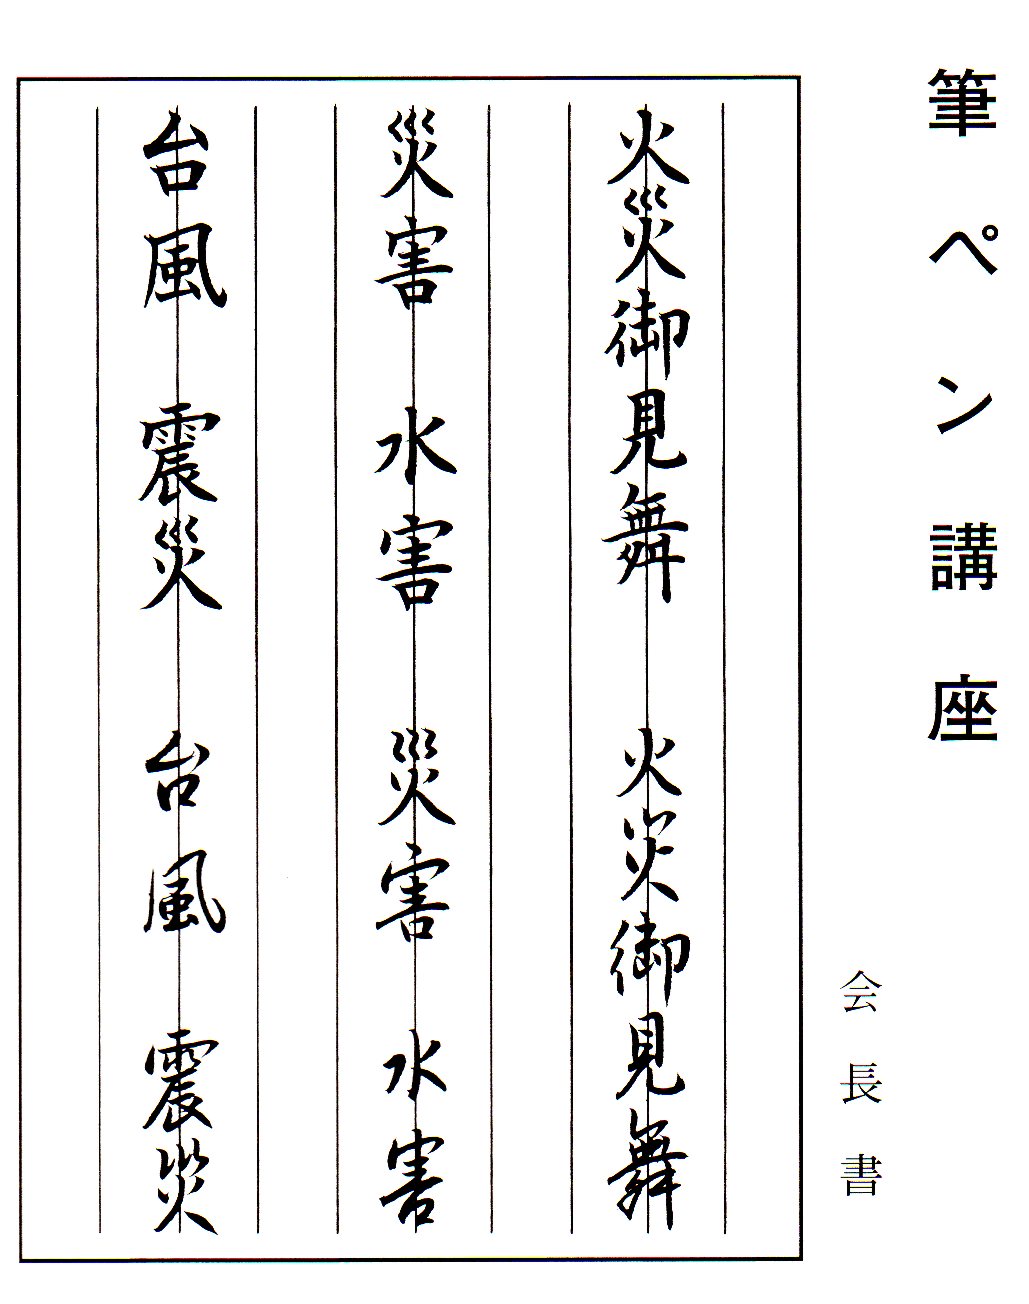 筆ペン講座
会長書
火災御見舞 火災御見舞
災害 水害 災害 水害
台風 震災 台風 震災